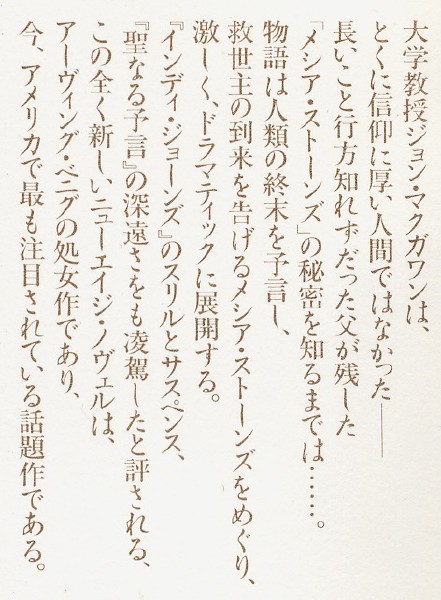 大学教授ジョン・マクガワンは、
とくに信仰に厚い人間ではなかった――
長いこと行方知れずだった父が残した
「メシア・ストーンズ」の秘密を知るまでは……。
物語は人類の終末を予言し、
救世主の到来を告げるメシア・ストーンズをめぐり、
激しく、ドラマティックに展開する。
『インディ・ジョーンズ』のスリルとサスペンス、
『聖なる予言』の深遠さをも凌駕したと評される、
この全く新しいニューエイジ・ノヴェルは、
アーヴィング・ベニグの処女作であり、
今、アメリカで最も注目されている話題作である。